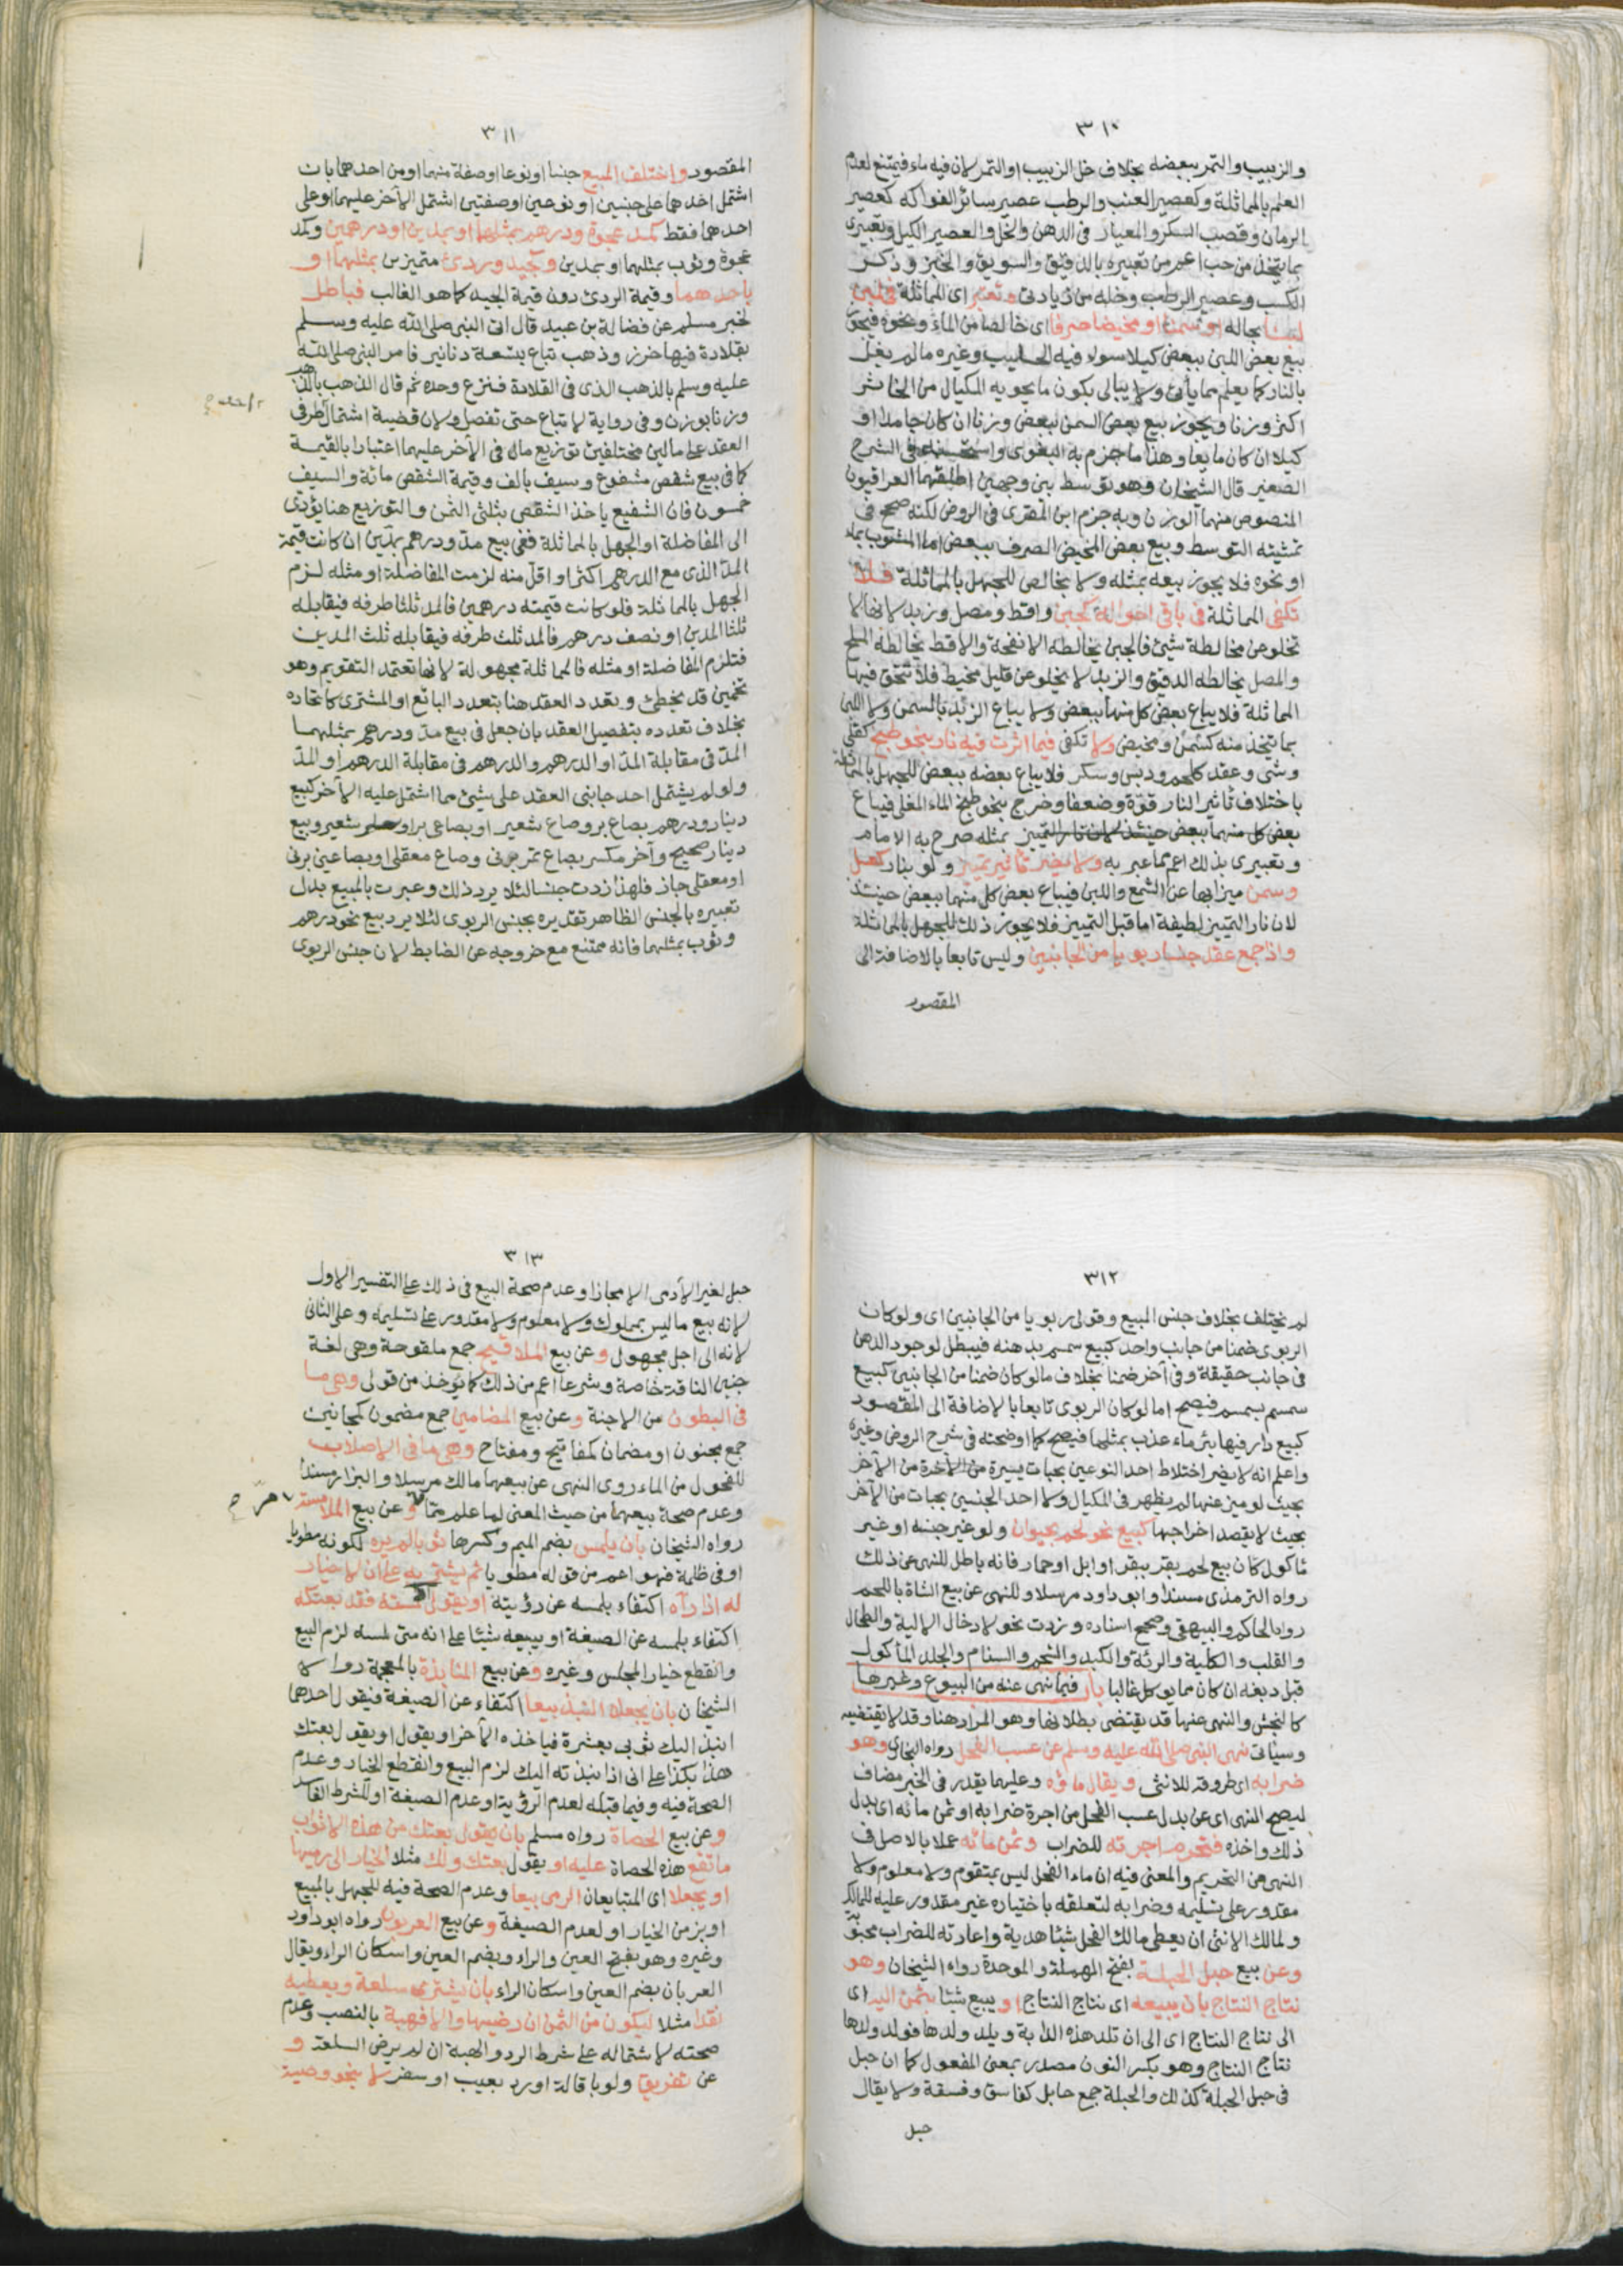 ٣١٠
والزبيب والتمر ببعضه بخلاف خل الزبيب او التمر لان فيه ماء فيمتنع لعدم
العلم بالمماثلة وكعصير العنب والرطب عصير سائر الفواكه كعصير
الرمان وقصب السكر والمعيار فى الدهن والخل والعصير الكيل وتعبيرى
بما يتخذ من حب اعم من تعبيره بالدقيق والسويق والخبز وذكر
الكسب وعصير الرطب وخله من زيادتى وتعتبر اى المماثلة فى لبن
لبنا بحاله او سمنا او مخيضا صرفا اى خالصا من الماء ونحوه فيجوز
بيع بعض اللبن ببعض كيلا سواء فيه الحليب وغيره ما لم يغل
بالنار كما يعلم مما يأتى ولا يبالى بكون ما يحويه المكيال من الخاثر
اكثر وزنا ويجوز بيع بعض السمن ببعض وزنا ان كان جامدا او
كيلا ان كان مايعا وهذا ما جزم به البغوى واستحسنه فى الشرح
الصغير قال الشيخان وهو توسط بين وجهين اطلقهما العراقيون
المنصوص منهما الوزن وبه جزم ابن المقرى فى الروض لكنه صحح فى
تمشيته التوسط وبيع بعض المخيض الصرف ببعض اما المشوب بماء
او نحوه فلا يجوز بيعه بمثله ولا بخالص للجهل بالمماثلة فلا
تكفى المماثلة فى باقى احواله كجبن واقط ومصل وزبد لانها لا
تخلو عن مخالطة شىء فالجبن يخالطه الانفحة والاقط يخالطه الملح
والمصل يخالطه الدقيق والزبد لا يخلو عن قليل مخيط فلا تتحقق فيها
المماثلة فلا يباع بعض كل منها ببعض ولا يباع الزبد بالسمن ولا اللبن
بما يتخذ منه كسمن ومخيض ولا تكفى فيما اثرت فيه نار بنحو طبخ كقلى
وشى وعقد كلحم ودبس وسكر فلا يباع بعضه ببعض للجهل بالمماثلة
باختلاف تأثير النار قوة وضعفا وخرج بنحو طبخ الماء المغلى فيباع
بعض كل منهما ببعض حينئذ لان نار التمييز بمثله صرح به الامام
وتعبيرى بذلك اعم مما عبر به ولا يضر تأثير تمييز ولو بنار كعسل
وسمن ميزا بها عن الشمع واللبن فيباع بعض كل منهما ببعض حينئذ
لان نار التمييز لطيفة اما قبل التمييز فلا يجوز ذلك للجهل بالمماثلة
واذا جمع عقد جنسا ربويا من الجانبين وليس تابعا بالاضافة الى
المقصود
٣١١
المقصود واختلف المبيع جنسا او نوعا او صفة منهما او من احدهما بان
اشتمل احدهما على جنسين او نوعين او صفتين اشتمل الآخر عليهما او على
احدهما فقط كمد عجوة ودرهم بمثلهما او بمدين او درهمين وكمد
عجوة وثوب بمثلهما او بمدين وكجيد وردئ متميزين بمثلهما او
باحدهما وقيمة الردئ دون قيمة الجيد كما هو الغالب فباطل
لخبر مسلم عن فضالة بن عبيد قال اتى النبى صلى الله عليه وسلم
بقلادة فيها خرز وذهب تباع بتسعة دنانير فامر النبى صلى الله
عليه وسلم بالذهب الذى فى القلادة فنزع وحده ثم قال الذهب بالذهب
وزنا بوزن وفى رواية لا تباع حتى تفصل ولان قضية اشتمال طرفى
العقد على مالين مختلفين توزيع مال فى الآخر عليهما اعتبارا بالقيمة
كما فى بيع شقص مشفوع وسيف بالف وقيمة الشقص مائة والسيف
خمسون فان الشفيع ياخذ الشقص بثلثى الثمن والتوزيع هنا يؤدى
الى المفاضلة او الجهل بالمماثلة ففى بيع مد ودرهم بمدين ان كانت قيمة
المد الذى مع الدرهم اكثر او اقل منه لزمت المفاضلة او مثله لزم
الجهل بالمماثلة فلو كانت قيمته درهمين فالمد ثلثا طرفه فيقابله
ثلثا المدين او نصف درهم فالمد ثلث طرفه فيقابله ثلث المدين
فتلزم المفاضلة او مثله فالمماثلة مجهولة لانها تعتمد التقويم وهو
تخمين قد يخطئ وتعدد العقد هنا بتعدد البائع او المشترى كاتحاده
بخلاف تعدده بتفصيل العقد بان جعل فى بيع مد ودرهم بمثلهما
المد فى مقابلة المد او الدرهم والدرهم فى مقابلة الدرهم او المد
ولو لم يشتمل احد جانبى العقد على شئ مما اشتمل عليه الآخر كبيع
دينار ودرهم بصاع بر وصاع شعير او بصاعى بر او شعير وبيع
دينار صحيح وآخر مكسر بصاع تمر برنى وصاع معقلى او بصاعين برنى
او معقلى جاز فلهذا زدت جنسا لئلا يرد ذلك وعبرت بالمبيع بدل
تعبيره بالجنس الظاهر تقديره بجنس الربوى لئلا يرد بيع نحو درهم
وثوب بمثلهما فانه ممتنع مع خروجه عن الضابط لان جنس الربوى
٣١٢
لم يختلف بخلاف جنس المبيع وقولى ربويا من الجانبين اى ولو كان
الربوى ضمنا من جانب واحد كبيع سمسم بدهنه فيبطل لوجود الدهن
فى جانب حقيقة وفى آخر ضمنا بخلاف ما لو كان ضمنا من الجانبين كبيع
سمسم بسمسم فيصح اما لو كان الربوى تابعا بالاضافة الى المقصود
كبيع دار فيها بئر ماء عذب بمثلها فيصح كما اوضحته فى شرح الروض وغيره
واعلم انه لا يضر اختلاط احد النوعين بحبات يسيرة من الآخر
بحيث لو ميز عنها لم يظهر فى المكيال ولا احد الجنسين بحبات من الآخر
بحيث لا يقصد اخراجها كبيع نحو لحم بحيوان ولو غير جنسه او غير
ماكول كان بيع لحم بقر ببقر او ابل او حمار فانه باطل للنهى عن ذلك
رواه الترمذى مسندا وابو داود مرسلا وللنهى عن بيع الشاة باللحم
رواه الحاكم والبيهقى وصحح اسناده وزدت نحو لادخال الالية والطحال
والقلب والكلية والرئة والكبد والشحم والسنام والجلد المأكول
قبل دبغه ان كان مما يوكل غالبا باب فيما نهى عنه من البيوع وغيرها
كالنجش والنهى عنها قد يقتضى بطلانها وهو المراد هنا وقد لا يقتضيه
وسيأتى نهى النبى صلى الله عليه وسلم عن عسب الفحل رواه البخارى وهو
ضرابه اى طروقه للانثى ويقال ماؤه وعليهما يقدر فى الخبر مضاف
ليصح النهى اى عن بدل عسب الفحل من اجرة ضرابه او ثمن مائه اى بدل
ذلك واخذه فتحرم اجرته للضراب وثمن مائه عملا بالاصل فى
النهى من التحريم والمعنى فيه ان ماء الفحل ليس بمتقوم ولا معلوم ولا
مقدور على تسليمه وضرابه لتعلقه باختياره غير مقدور عليه للمالك
ولمالك الانثى ان يعطى مالك الفحل شيئا هدية واعارته للضراب محبوبة
وعن بيع حبل الحبلة بفتح المهملة والموحدة رواه الشيخان وهو
نتاج النتاج بان يبيعه اى نتاج النتاج او يبيع شيئا بثمن اليه اى
الى نتاج النتاج اى الى ان تلد هذه الدابة ويلد ولدها فولد ولدها
نتاج النتاج وهو بكسر النون مصدر بمعنى المفعول كما ان حبل
فى حبل الحبلة كذلك والحبلة جمع حابل كفاسق وفسقة ولا يقال
حبل
٣١٣
حبل لغير الآدمى الا مجازا وعدم صحة البيع فى ذلك على التفسير الاول
لانه بيع ما ليس بمملوك ولا معلوم ولا مقدور على تسليمه وعلى الثانى
لانه الى اجل مجهول وعن بيع الملاقيح جمع ملقوحة وهى لغة
جنين الناقة خاصة وشرعا اعم من ذلك كما يوخذ من قولى وهى ما
فى البطون من الاجنة وعن بيع المضامين جمع مضمون كمجانين
جمع مجنون او مضمان كمفاتيح ومفتاح وهى ما فى الاصلاب
للفحول من الماء روى النهى عن بيعهما مالك مرسلا والبزار مسندا
وعدم صحة بيعهما من حيث المعنى لما علم مما مر وعن بيع الملامسة
رواه الشيخان بان يلمس بضم الميم وكسرها ثوبا لم يره لكونه مطويا
او فى ظلمة فهو اعم من قوله مطويا ثم يشتريه على ان لا خيار
له اذا رآه اكتفاء بلمسه عن رؤيته او يقول اذا لمسته فقد بعتكه
اكتفاء بلمسه عن الصيغة او يبيعه شيئا على انه متى لمسه لزم البيع
وانقطع خيار المجلس وغيره وعن بيع المنابذة بالمعجمة رواه
الشيخان بان يجعلا النبذ بيعا اكتفاء عن الصيغة فيقول احدهما
انبذ اليك ثوبى بعشرة فياخذه الآخر او يقول او يقول بعتك
هذا بكذا على انى اذا نبذته اليك لزم البيع وانقطع الخيار وعدم
الصحة فيه وفيما قبله لعدم الرؤية او عدم الصيغة او للشرط الفاسد
وعن بيع الحصاة رواه مسلم بان يقول بعتك من هذه الاثواب
ما تقع هذه الحصاة عليه او يقول بعتك ولك مثلا الخيار الى رميها
او يجعلا اى المتبايعان الرمى بيعا وعدم الصحة فيه للجهل بالمبيع
او بزمن الخيار او لعدم الصيغة وعن بيع العربون رواه ابو داود
وغيره وهو بفتح العين والراء وبضم العين واسكان الراء ويقال
العربان بضم العين واسكان الراء بان يشترى سلعة ويعطيه
نقدا مثلا ليكون من الثمن ان رضيها والا فهبة بالنصب وعدم
صحته لاشتماله على شرط الرد والهبة ان لم يرض السلعة و
عن تفريق ولو باقالة او رد بعيب او سفر لا بنحو وصية